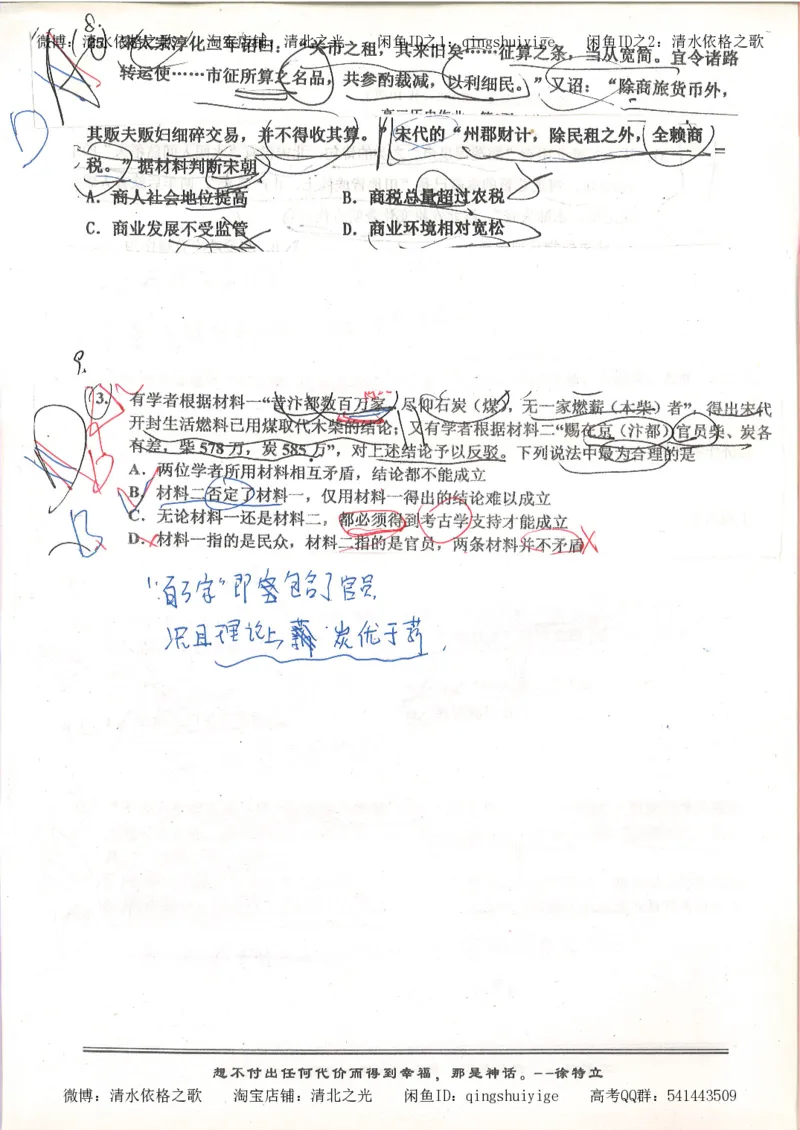 8.
微博：清水依格之歌 淘宝店铺：清北之光 闲鱼ID之1：qingshuiyige 闲鱼ID之2：清水依格之歌
25. 宋太宗淳化二年诏曰：“关市之租，其来旧矣……征算之条，当从宽简。宜令诸路
转运使……市征所算之名品，共参酌裁减，以利细民。”又诏：“除商旅货币外，
其贩夫贩妇细碎交易，并不得收其算。”宋代的“州郡财计，除民租之外，全赖商
税。”据材料判断宋朝
A. 商人社会地位提高 B. 商税总量超过农税
C. 商业发展不受监管 D. 商业环境相对宽松
9.
3. 有学者根据材料一“昔汴都数百万家，尽仰石炭（煤），无一家燃薪（木柴）者”，得出宋代
开封生活燃料已用煤取代木柴的结论；又有学者根据材料二“赐在京（汴都）官员柴、炭各
有差，柴 578 万，炭 585 万”，对上述结论予以反驳。下列说法中最为合理的是
A. 两位学者所用材料相互矛盾，结论都不能成立
B. 材料二否定了材料一，仅用材料一得出的结论难以成立
C. 无论材料一还是材料二，都必须得到考古学支持才能成立
D. 材料一指的是民众，材料二指的是官员，两条材料并不矛盾
B
即 包含了官员
况且理论上 炭优于薪.
想不付出任何代价而得到幸福，那是神话。--徐特立
微博：清水依格之歌 淘宝店铺：清北之光 闲鱼ID：qingshuiyige 高考QQ群：541443509